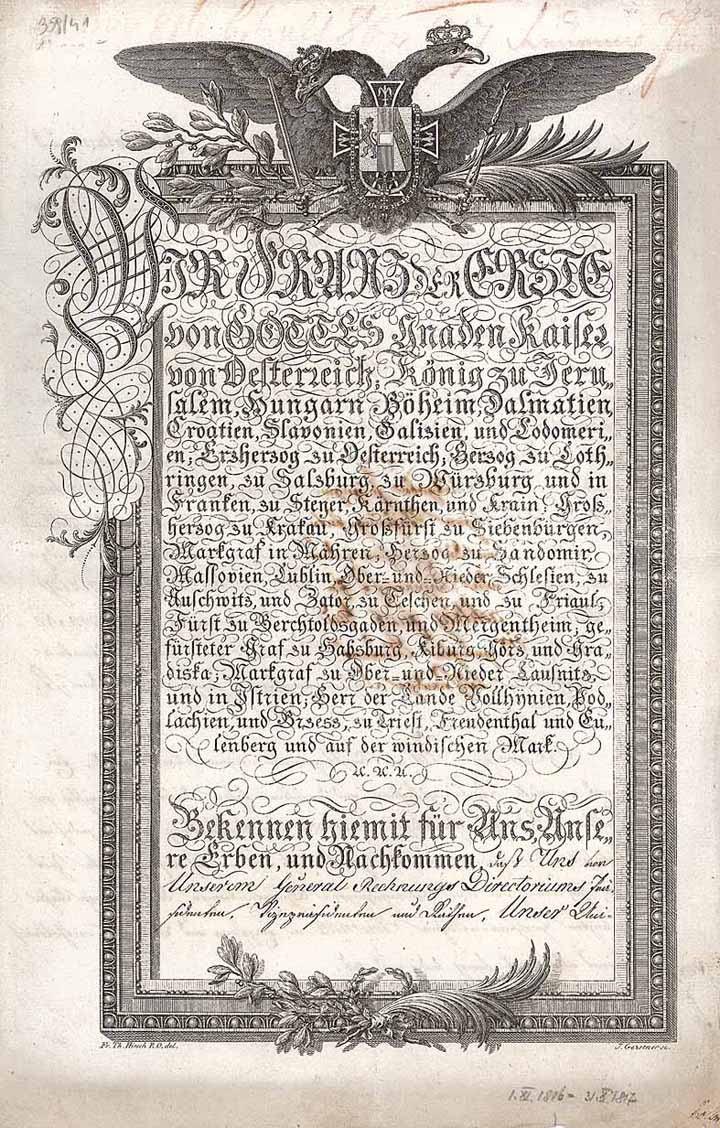 398/41
WIR FRANZ DER ERSTE
von GOTTES Gnaden Kaiser
von Oesterreich; König zu Jeru„
salem, Hungarn Böheim, Dalmatien,
Croatien, Slavonien, Galizien, und Lodomeri„
en; Erzherzog zu Oesterreich; Herzog zu Loth„
ringen, zu Salzburg, zu Würzburg und in
Franken, zu Steyer, Kärnthen, und Krain; Groß„
herzog zu Krakau; Großfürst zu Siebenbürgen;
Markgraf in Mähren; Herzog zu Sandomir,
Massovien, Lublin, Ober-und-Nieder Schlesien, zu
Auschwitz, und Zator, zu Teschen, und zu Friaul;
Fürst zu Berchtoldsgaden und Mergentheim; ge„
fürsteter Graf zu Habsburg, Kiburg, Görz und Gra„
diska; Markgraf zu Ober-und-Nieder Lausnitz,
und in Istrien; Herr der Lande Vollhynien, Pod„
lachien, und Brzesz, zu Triest, Freudenthal und Eu„
lenberg und auf der windischen Mark.
A.A.A.
Bekennen hiemit für Uns, Unse„
re Erben, und Nachkommen, daß Uns von
Unserem General Rechnungs Directoriums Prä-
sidenten, Vizepräsidenten und Räthen, Unser
Fr. Th. Hirsch R.O. del.
J. Gerstner sc.
1.XI.1816 = 31.X.1817